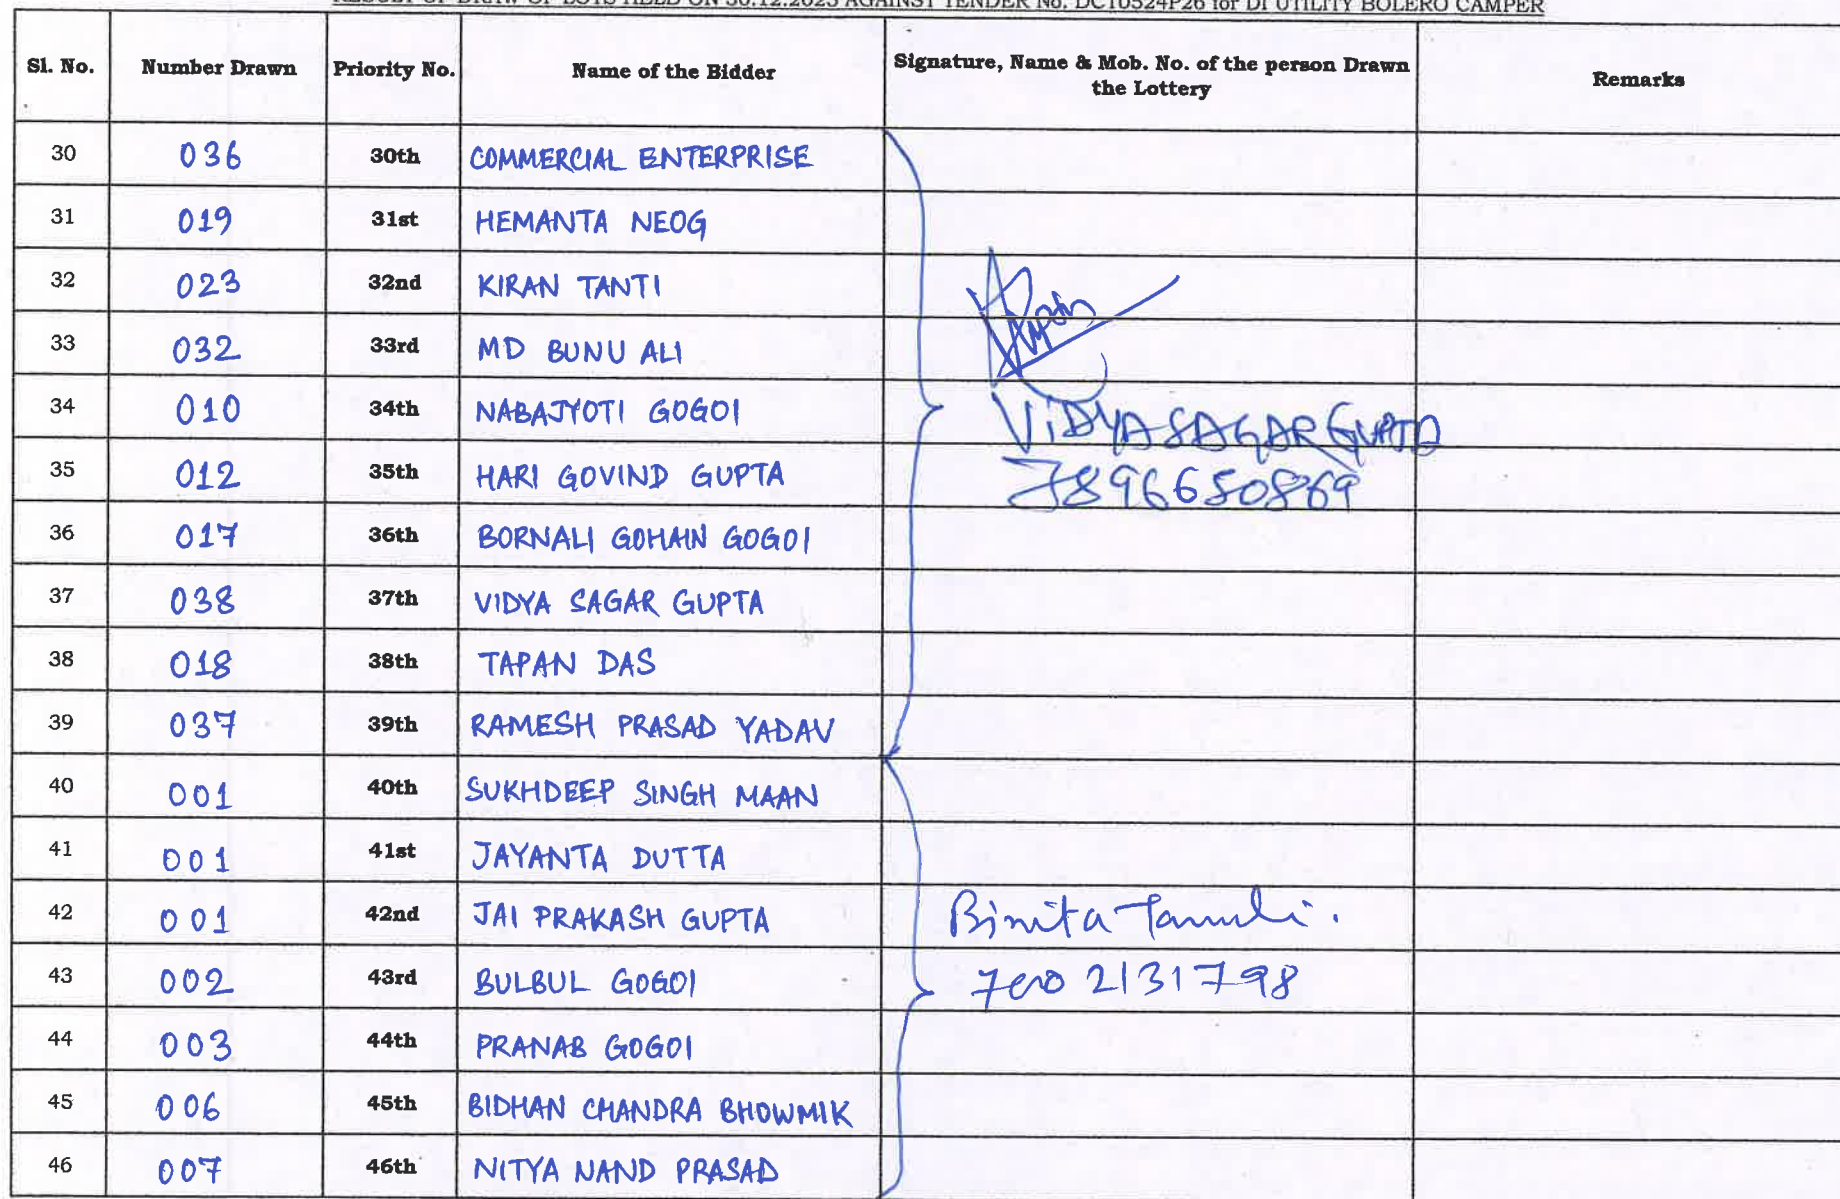 RESULT OF DRAW OF LOTS HELD ON 30.12.2023 AGAINST TENDER No. DCT0524P26 for DI UTILITY BOLERO CAMPER
Sl. No. Number Drawn Priority No. Name of the Bidder Signature, Name & Mob. No. of the person Drawn the Lottery Remarks
30 036 30th COMMERCIAL ENTERPRISE
31 019 31st HEMANTA NEOG
32 023 32nd KIRAN TANTI
33 032 33rd MD BUNU ALI
34 010 34th NABAJYOTI GOGOI VIDYA SAGAR GUPTA
35 012 35th HARI GOVIND GUPTA 7896650869
36 017 36th BORNALI GOHAIN GOGOI
37 038 37th VIDYA SAGAR GUPTA
38 018 38th TAPAN DAS
39 037 39th RAMESH PRASAD YADAV
40 001 40th SUKHDEEP SINGH MAAN
41 001 41st JAYANTA DUTTA
42 001 42nd JAI PRAKASH GUPTA Binita Tamuli.
43 002 43rd BULBUL GOGOI
44 003 44th PRANAB GOGOI
45 006 45th BIDHAN CHANDRA BHOWMIK
46 007 46th NITYA NAND PRASAD